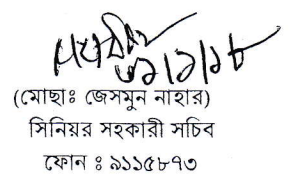 ৩১/১/১৮
(মোছাঃ জেসমুন নাহার)
সিনিয়র সহকারী সচিব
ফোন ঃ ৯১১৫৮৭৩